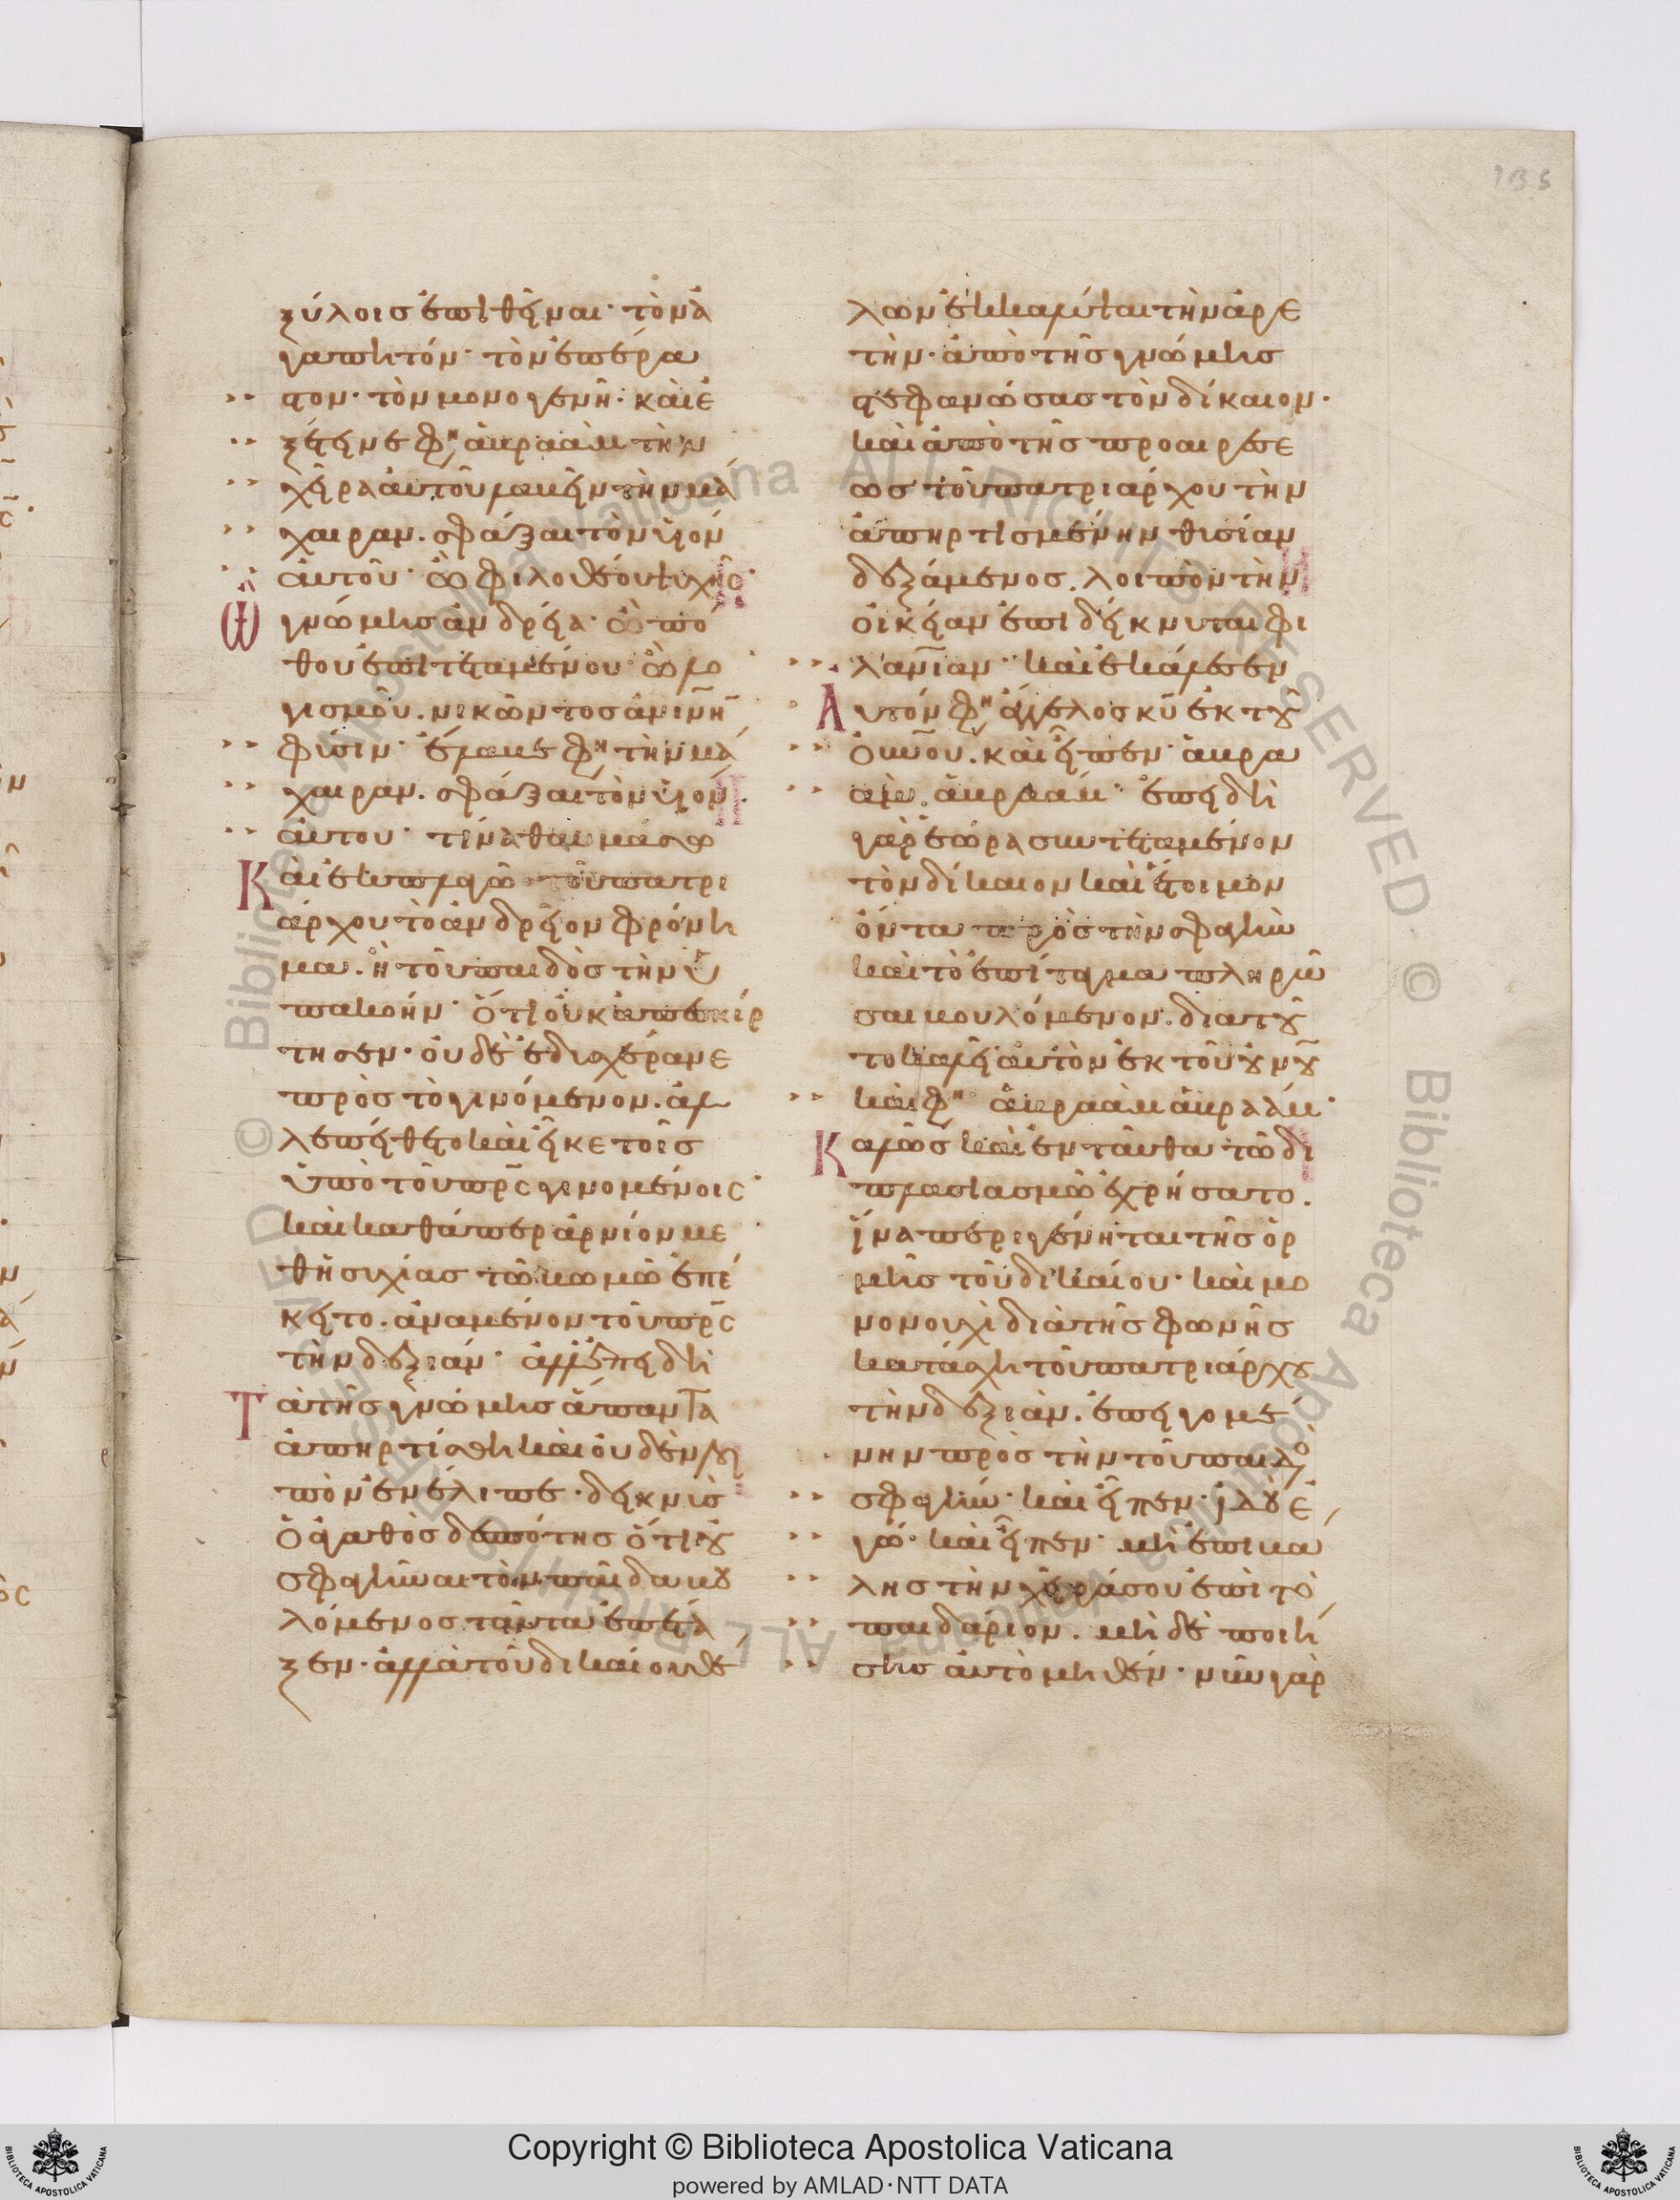 135
ξύλοισ ἐπιθεῖναι· τὸν ἀ
γαπητόν· τὸν ἐπέρα
στον· τὸν μονογενῆ· καὶ ἐ
ξέτεινε φη ἁβραὰμ τὴν
χεῖρα ἀυτοῦ λαβεῖν τὴν μά
χαιραν. σφάξαι τὸν ϋιὸν
ἀυτοῦ· ὢ φιλοθέου ψυχῆς·
ὢ γνώμησ ἀνδρεία· ὢ πό
θου ἐπιτεταμένου· ὢ λο
γισμοῦ. νικῶντοσ ἀνινην
φύσιν· ἔλαβε φη τὴν μά
χαιραν. σφάξαι τὸν ϋιὸν
ἀυτου· τίνα θαυμάσω
Καὶ ἐκπλαγῶ· τοῦ πατρι
άρχου τὸ ἀνδρεῖον φρόνη
μα. ἢ τοῦ παιδὸσ τὴν ὑ
πακοήν· ὅτι ὀυκ ἀπεσκίρ
τησεν· ὀυδὲ ἐδυσχέρανε
πρὸσ τὸ γινόμενον. ἀλ
λ επείθετο καὶ εἶκε τοῖσ
ὑπὸ τοῦ πρς γινομένοις·
καὶ καθάπερ ἀρνίον με
θ ἡσυχίασ τῶ βωμῶ ἐπέ
κειτο. ἀναμένον τοῦ πρς
τὴν δεξιάν· ἀλλ ἐπειδὴ
Τὰ τῆσ γνώμησ ἅπαντα
ἀπηρτίσθη καὶ ὀυδὲν λει
πὸν ἐνέλιπε· δεικνὺσ
ὁ ἀγαθὸσ δεσπότησ ὅτι οὐ
σφαγῆναι τὸν παῖδα βου
λόμενοσ ταῦτα ἐπέτα
ξεν· ἀλλὰ τοῦ δικαίου θέ
λων ἐκκαλύψαι τὴν ἀρε
τὴν· ἀπὸ τῆσ γνώμησ
στεφανώσασ τὸν δίκαιον·
καὶ ἀπὸ τῆσ προαιρέσε
ωσ τοῦ πατριάρχου τὴν
ἀπηρτισμένην θυσίαν
δεξάμενοσ. λοιπὸν τὴν
οἰκείαν ἐπιδείκνυται φι
λανίαν· καὶ ἐκάλεσεν
Ἀυτόν φη ἄγγελοσ κυ ἐκ του
ὀυνου. καὶ εἶπεν· ἁβρα
ὰμ ἁβραάμ· ἐπειδὴ
γὰρ ἑώρα συντεταμένον
τὸν δίκαιον καὶ ἕτοιμον
ὄντα πρὸσ τὴν σφαγὴν
καὶ τὸ ἐπίταγμα πληρῶ
σαι βουλόμενον. διατοῦ
το καλεῖ ἀυτὸν ἐκ τοῦ ουνου
καὶ φη ἁβραὰμ ἁβραάμ·
Καλῶσ καὶ ἐνταῦθα τῶ δι
πλασιασμῶ ἐχρήσατο.
ἵνα περιγένηται τῆσ ὁρ
μῆσ τοῦ δικαίου· καὶ μο
νονουχὶ διὰ τῆσ φωνῆσ
κατάσχη τοῦ πατριάρχου
τὴν δεξιὰν. ἐπειγομέ
νην πρὸσ τὴν τοῦ παιδὸ
σφαγὴν· καὶ εἶπεν· ἰδοὺ ἐ
γώ· καὶ εἶπεν· μὴ ἐπιβα
λησ τὴν χεῖρά σου ἐπὶ τὸ
παιδάριον. μὴ δὲ ποιή
σησ ἀυτὸ μηθέν· νῦν γὰρ
Copyright © Biblioteca Apostolica Vaticana
powered by AMLAD·NTT DATA